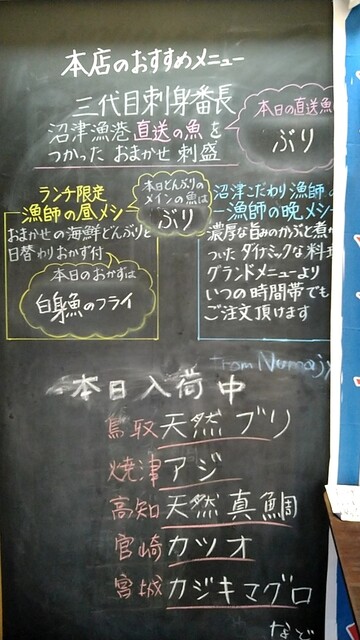 本店のおすすめメニュー
三代目刺身番長
沼津漁港直送の魚を
つかった おまかせ 刺盛
本日の直送魚
ぶり
ランチ限定
漁師の昼メシ
おまかせの海鮮どんぶりと
日替わりおかず付
本日どんぶりの
メインの魚は
ぶり
本日のおかずは
白身魚のフライ
沼津こだわり漁師の
漁師の晩メシ
濃厚な旨みのかぶと煮が
ついた ダイナミックな料理
グランドメニューより
いつの時間帯でも
ご注文頂けます
from Numaj
本日入荷中
鳥取 天然 ブリ
焼津 アジ
高知 天然 真鯛
宮崎 カツオ
宮城 カジキマグロ
など